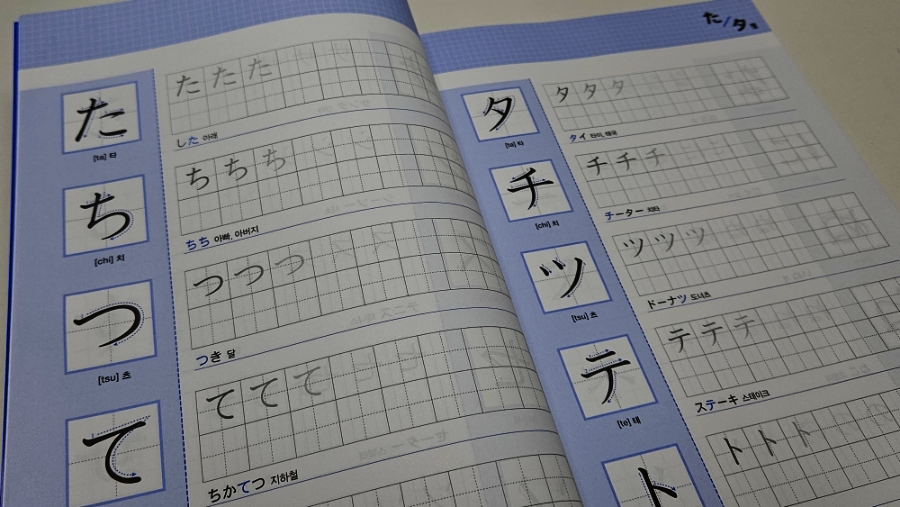 た/タ행
た
[ta] 타
た た た
した 아래
ち
[chi] 치
ち ち ち
ちち 아빠, 아버지
つ
[tsu] 츠
つ つ つ
つき 달
て
て て て
ちかてつ 지하철
タ
[ta] 타
タ タ タ
タイ 타이, 태국
チ
[chi] 치
チ チ チ
チーター 치타
ツ
[tsu] 츠
ツ ツ ツ
ドーナツ 도너츠
テ
[te] 테
テ テ テ
ステーキ 스테이크
ト
ト ト ト